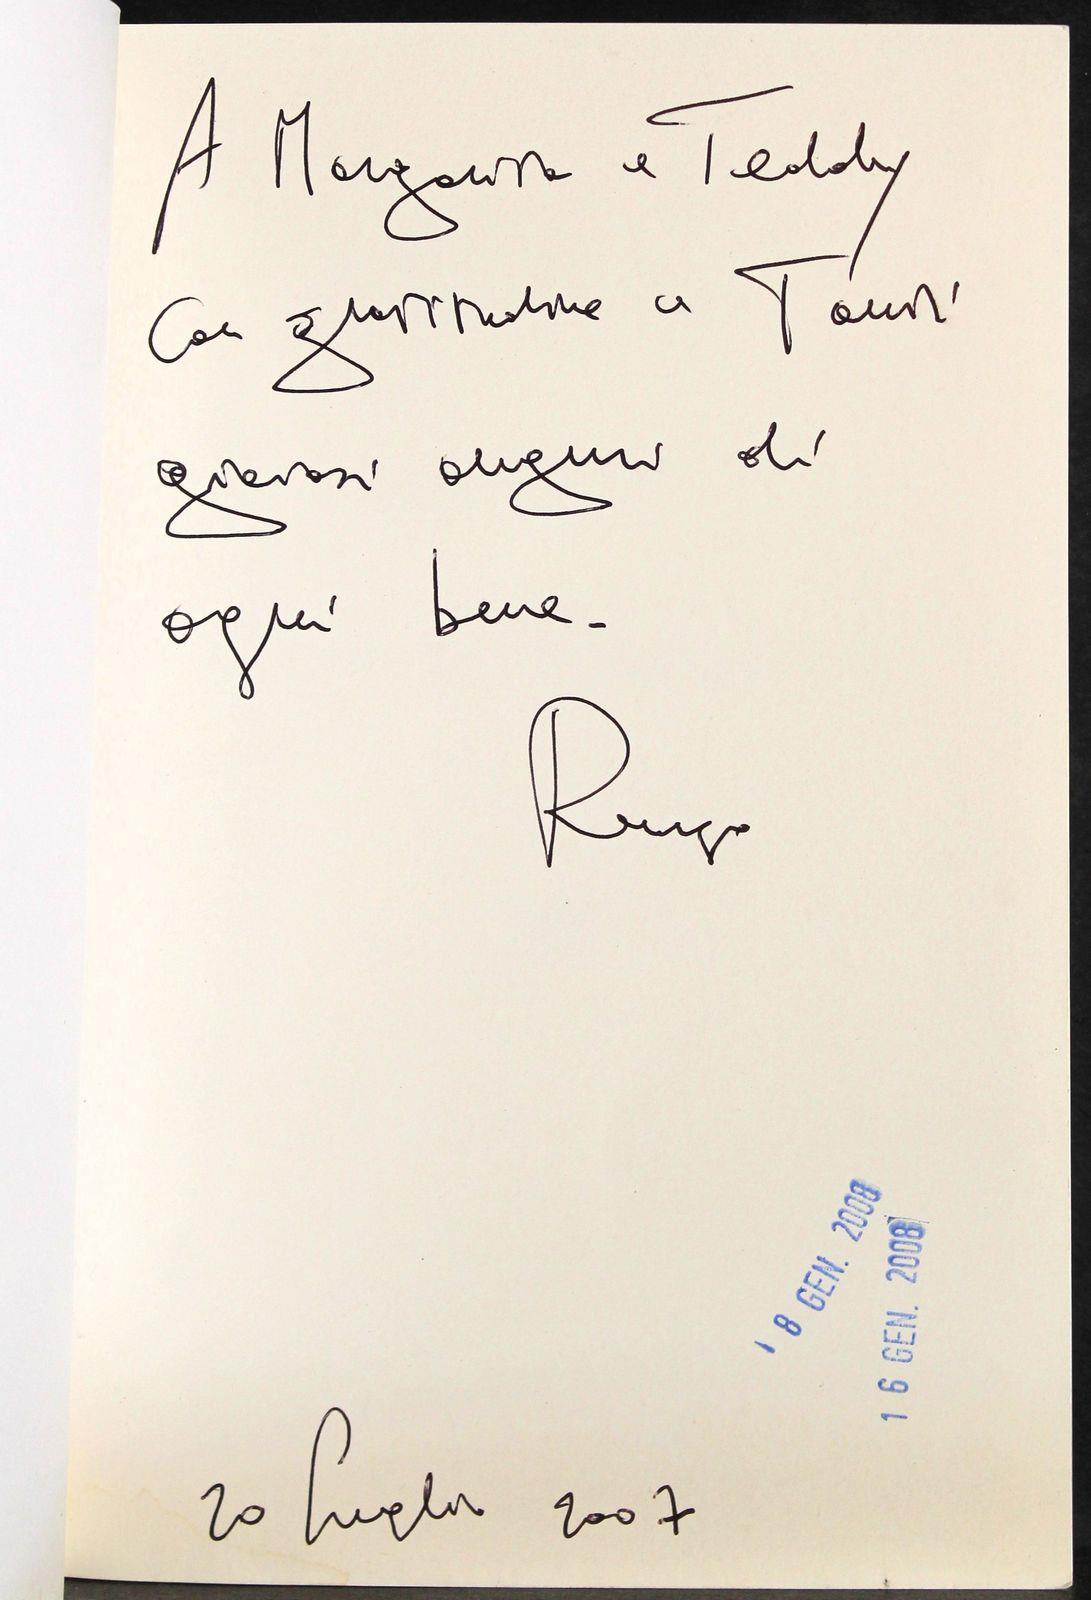 A Margarita e Teddy
Con gratitudine e Tanti
gioiosi auguri di
ogni bene.
18 GEN. 2008
16 GEN. 2008
20 luglio 2007